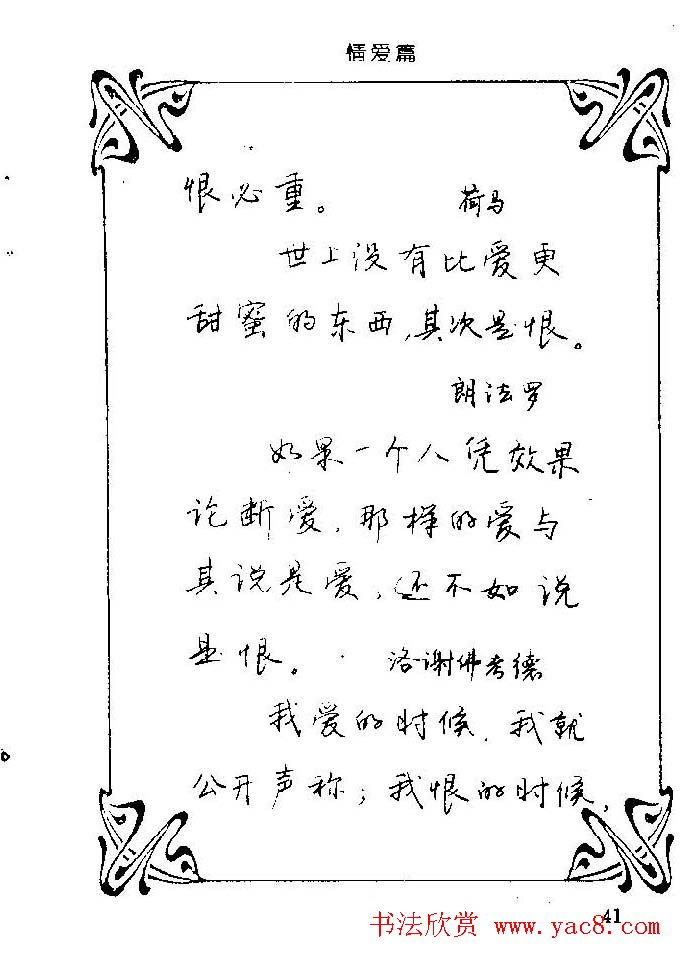 情爱篇
恨必重。 荷马
世上没有比爱更
甜蜜的东西,其次是恨。
朗法罗
如果一个人凭效果
论断爱,那样的爱与
其说是爱,还不如说
是恨。 洛谢佛考德
我爱的时候,我就
公开声称;我恨的时候,
41
书法欣赏 www.yac8.com